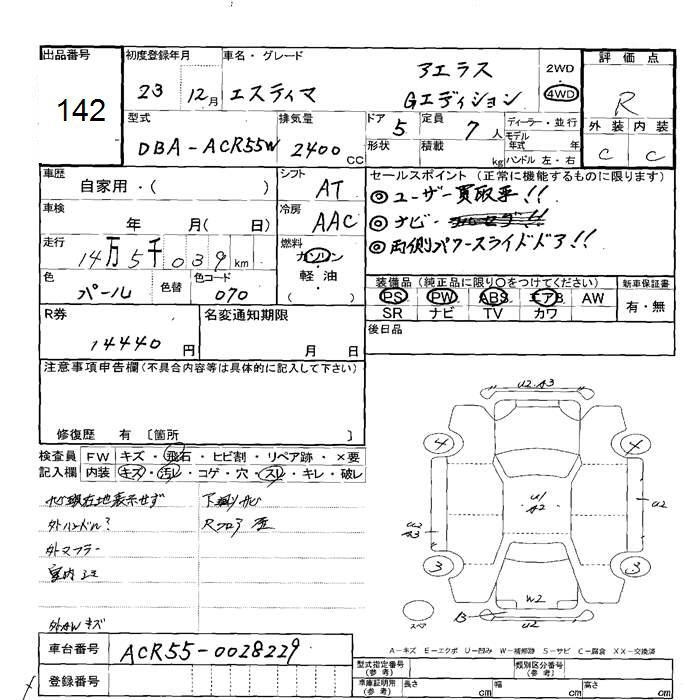 出品番号 初度登録年月 車名・グレード 評価点
142 23 12月 エスティマ アエラス Gエディション 2WD 4WD R
外装 内装
C C
型式 排気量 ドア 定員 ディーラー・並行
DBA-ACR55W 2400CC 5 7人 モデル年式 年
形状 積載 kg ハンドル 左・右
車歴 シフト セールスポイント(正常に機能するものに限ります)
自家用・( ) AT ◎ユーザー買取車!!
車検 冷房 ◎ナビ
年 月( 日) AAC ◎両側パワースライドドア!!
走行 燃料
14万5千039km ガソリン
軽・油
( )
色 色替 色コード 装備品(純正品に限り○をつけてください) 新車保証書
パール 070 PS PW ABS エアB AW 有・無
SR ナビ TV カワ
R券 名変通知期限 後日品
14440円 月 日
注意事項申告欄(不具合内容等は具体的に記入して下さい)
修復歴 有 〔箇所 〕
検査員 FW キズ・飛石・ヒビ割・リペア跡・×要
記入欄 内装 キズ・汚レ・コゲ・穴・スレ・キレ・破レ
ナビ現在地表示せず 下廻りサビ
外ハンドル?
外マフラー
室内
外AWキズ
U2.A3
4 4
U1
A2
U2
A3
U2
3 3
W2
B U2
スペア
A-キズ E-エクボ U-凹み W-補修跡 S-サビ C-腐食 XX-交換済
車台番号 ACR55-0028229
登録番号
型式指定番号(参考) 類別区分番号(参考)
車庫証明用(参考) 長さ cm 幅 cm 高さ cm